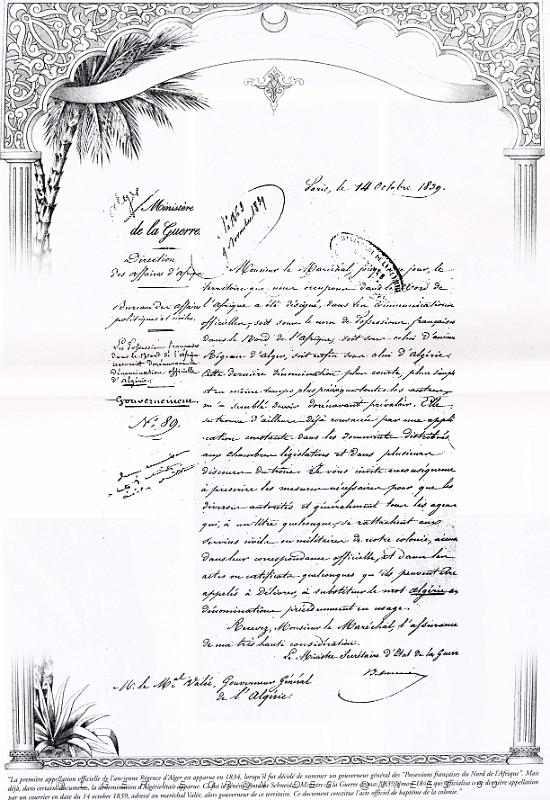 Paris, le 14 Octobre 1839.
Alger
Ministère
de la Guerre.
Direction
des affaires d'Afrique
Bureau des affaires
politiques et civiles.
Les Possessions françaises
dans le Nord de l'Afrique
recevront dorénavant
dénomination officielle
d'Algérie.
Gouvernement
N° 89.
Monsieur le Maréchal, jusqu'à ce jour, le
territoire que nous occupons dans le Nord de
l'Afrique a été désigné, dans les communications
officielles, soit sous le nom de Possessions françaises
dans le Nord de l'Afrique, soit sous celui d'ancienne
Régence d'Alger, soit enfin sous celui d'Algérie.
Cette dernière dénomination plus courte, plus simple
et en même temps plus précise que toutes les autres,
m'a semblé devoir dorénavant prévaloir. Elle
se trouve d'ailleurs déjà consacrée par une appli
cation constante dans les documents distribués
aux chambres législatives et dans plusieurs
discours du trône. Je vous invite en conséquence
à prescrire les mesures nécessaires pour que les
diverses autorités et généralement tous les agens
qui, à un titre quelconque, se rattachent aux
services civils ou militaires de notre colonie, aient
dans leur correspondance officielle, et dans les
actes ou certificats quelconques qu'ils peuvent être
appelés à délivrer, à substituer le mot algérie aux
dénominations précédemment en usage.
Recevez, Monsieur le Maréchal, l'assurance
de ma très haute considération.
Le Ministre Secrétaire d'Etat de la Guerre
M. le Mal Valée, Gouverneur Général
de l'Algérie.
"La première appellation officielle de l'ancienne Régence d'Alger est apparue en 1834, lorsqu'il fut décidé de nommer un gouverneur général des "Possessions françaises du Nord de l'Afrique". Mais
déjà, dans certains documents, la dénomination d'Algérie était apparue. C'est le général Schneider, Ministre de la Guerre qui officialisa cette dernière appellation
par un courrier en date du 14 octobre 1839, adressé au maréchal Valée, alors gouverneur de ce territoire. Ce document constitue l'acte officiel de baptême de la colonie."